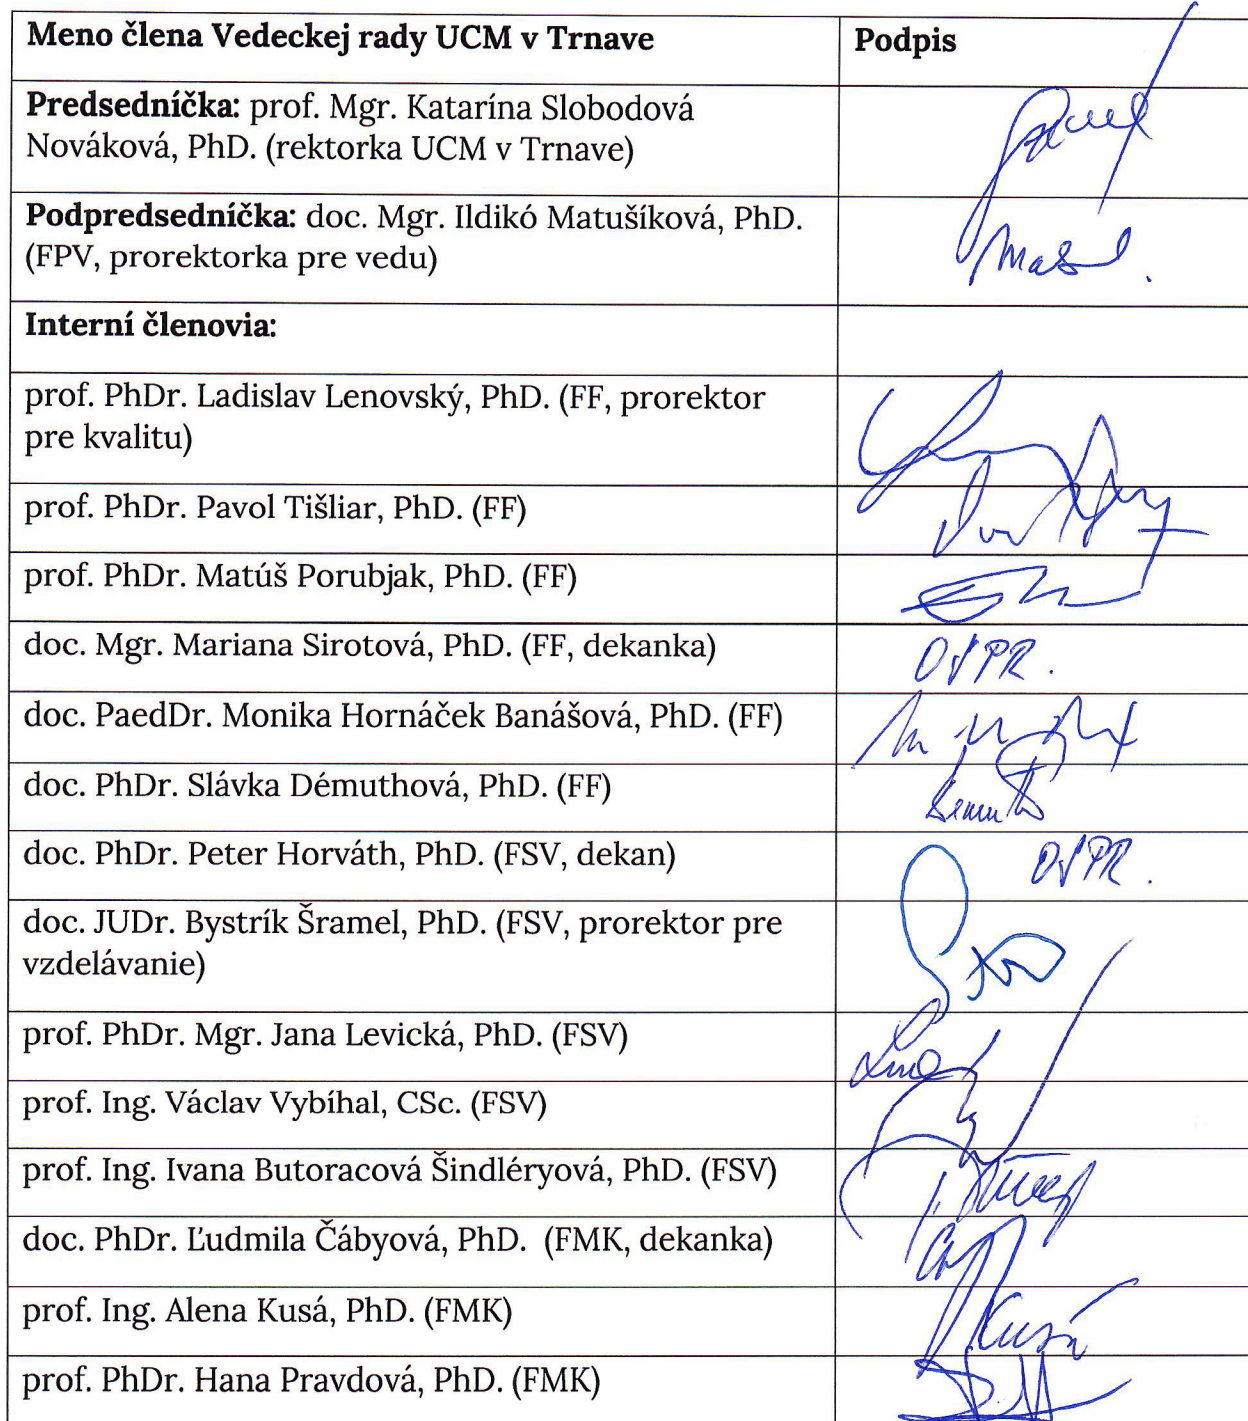 Meno člena Vedeckej rady UCM v Trnave Podpis
Predsedníčka: prof. Mgr. Katarína Slobodová
Nováková, PhD. (rektorka UCM v Trnave)
Podpredsedníčka: doc. Mgr. Ildikó Matušíková, PhD.
(FPV, prorektorka pre vedu)
Interní členovia:
prof. PhDr. Ladislav Lenovský, PhD. (FF, prorektor
pre kvalitu)
prof. PhDr. Pavol Tišliar, PhD. (FF)
prof. PhDr. Matúš Porubjak, PhD. (FF)
doc. Mgr. Mariana Sirotová, PhD. (FF, dekanka)
doc. PaedDr. Monika Hornáček Banášová, PhD. (FF)
doc. PhDr. Slávka Démuthová, PhD. (FF)
doc. PhDr. Peter Horváth, PhD. (FSV, dekan)
doc. JUDr. Bystrík Šramel, PhD. (FSV, prorektor pre
vzdelávanie)
prof. PhDr. Mgr. Jana Levická, PhD. (FSV)
prof. Ing. Václav Vybíhal, CSc. (FSV)
prof. Ing. Ivana Butoracová Šindléryová, PhD. (FSV)
doc. PhDr. Ľudmila Čábyová, PhD. (FMK, dekanka)
prof. Ing. Alena Kusá, PhD. (FMK) Kusá
prof. PhDr. Hana Pravdová, PhD. (FMK)